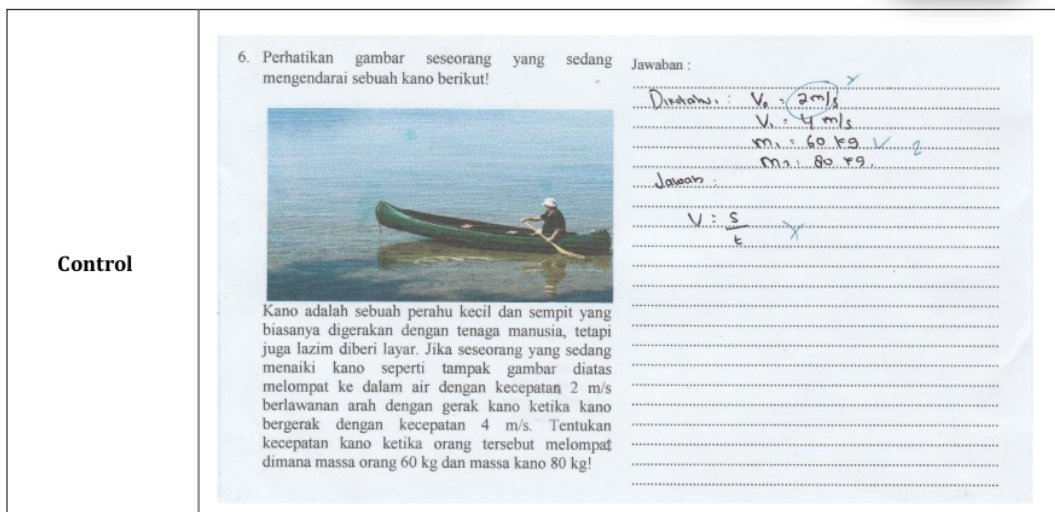 Control
6. Perhatikan gambar seseorang yang sedang
mengendarai sebuah kano berikut!
Kano adalah sebuah perahu kecil dan sempit yang
biasanya digerakan dengan tenaga manusia, tetapi
juga lazim diberi layar. Jika seseorang yang sedang
menaiki kano seperti tampak gambar diatas
melompat ke dalam air dengan kecepatan 2 m/s
berlawanan arah dengan gerak kano ketika kano
bergerak dengan kecepatan 4 m/s. Tentukan
kecepatan kano ketika orang tersebut melompat
dimana massa orang 60 kg dan massa kano 80 kg!
Jawaban :
V₀ : 2 m/s
V₁ : 4 m/s
m₁ : 60 kg 2
m₂ : 80 kg.
Jawab :
V : s/t